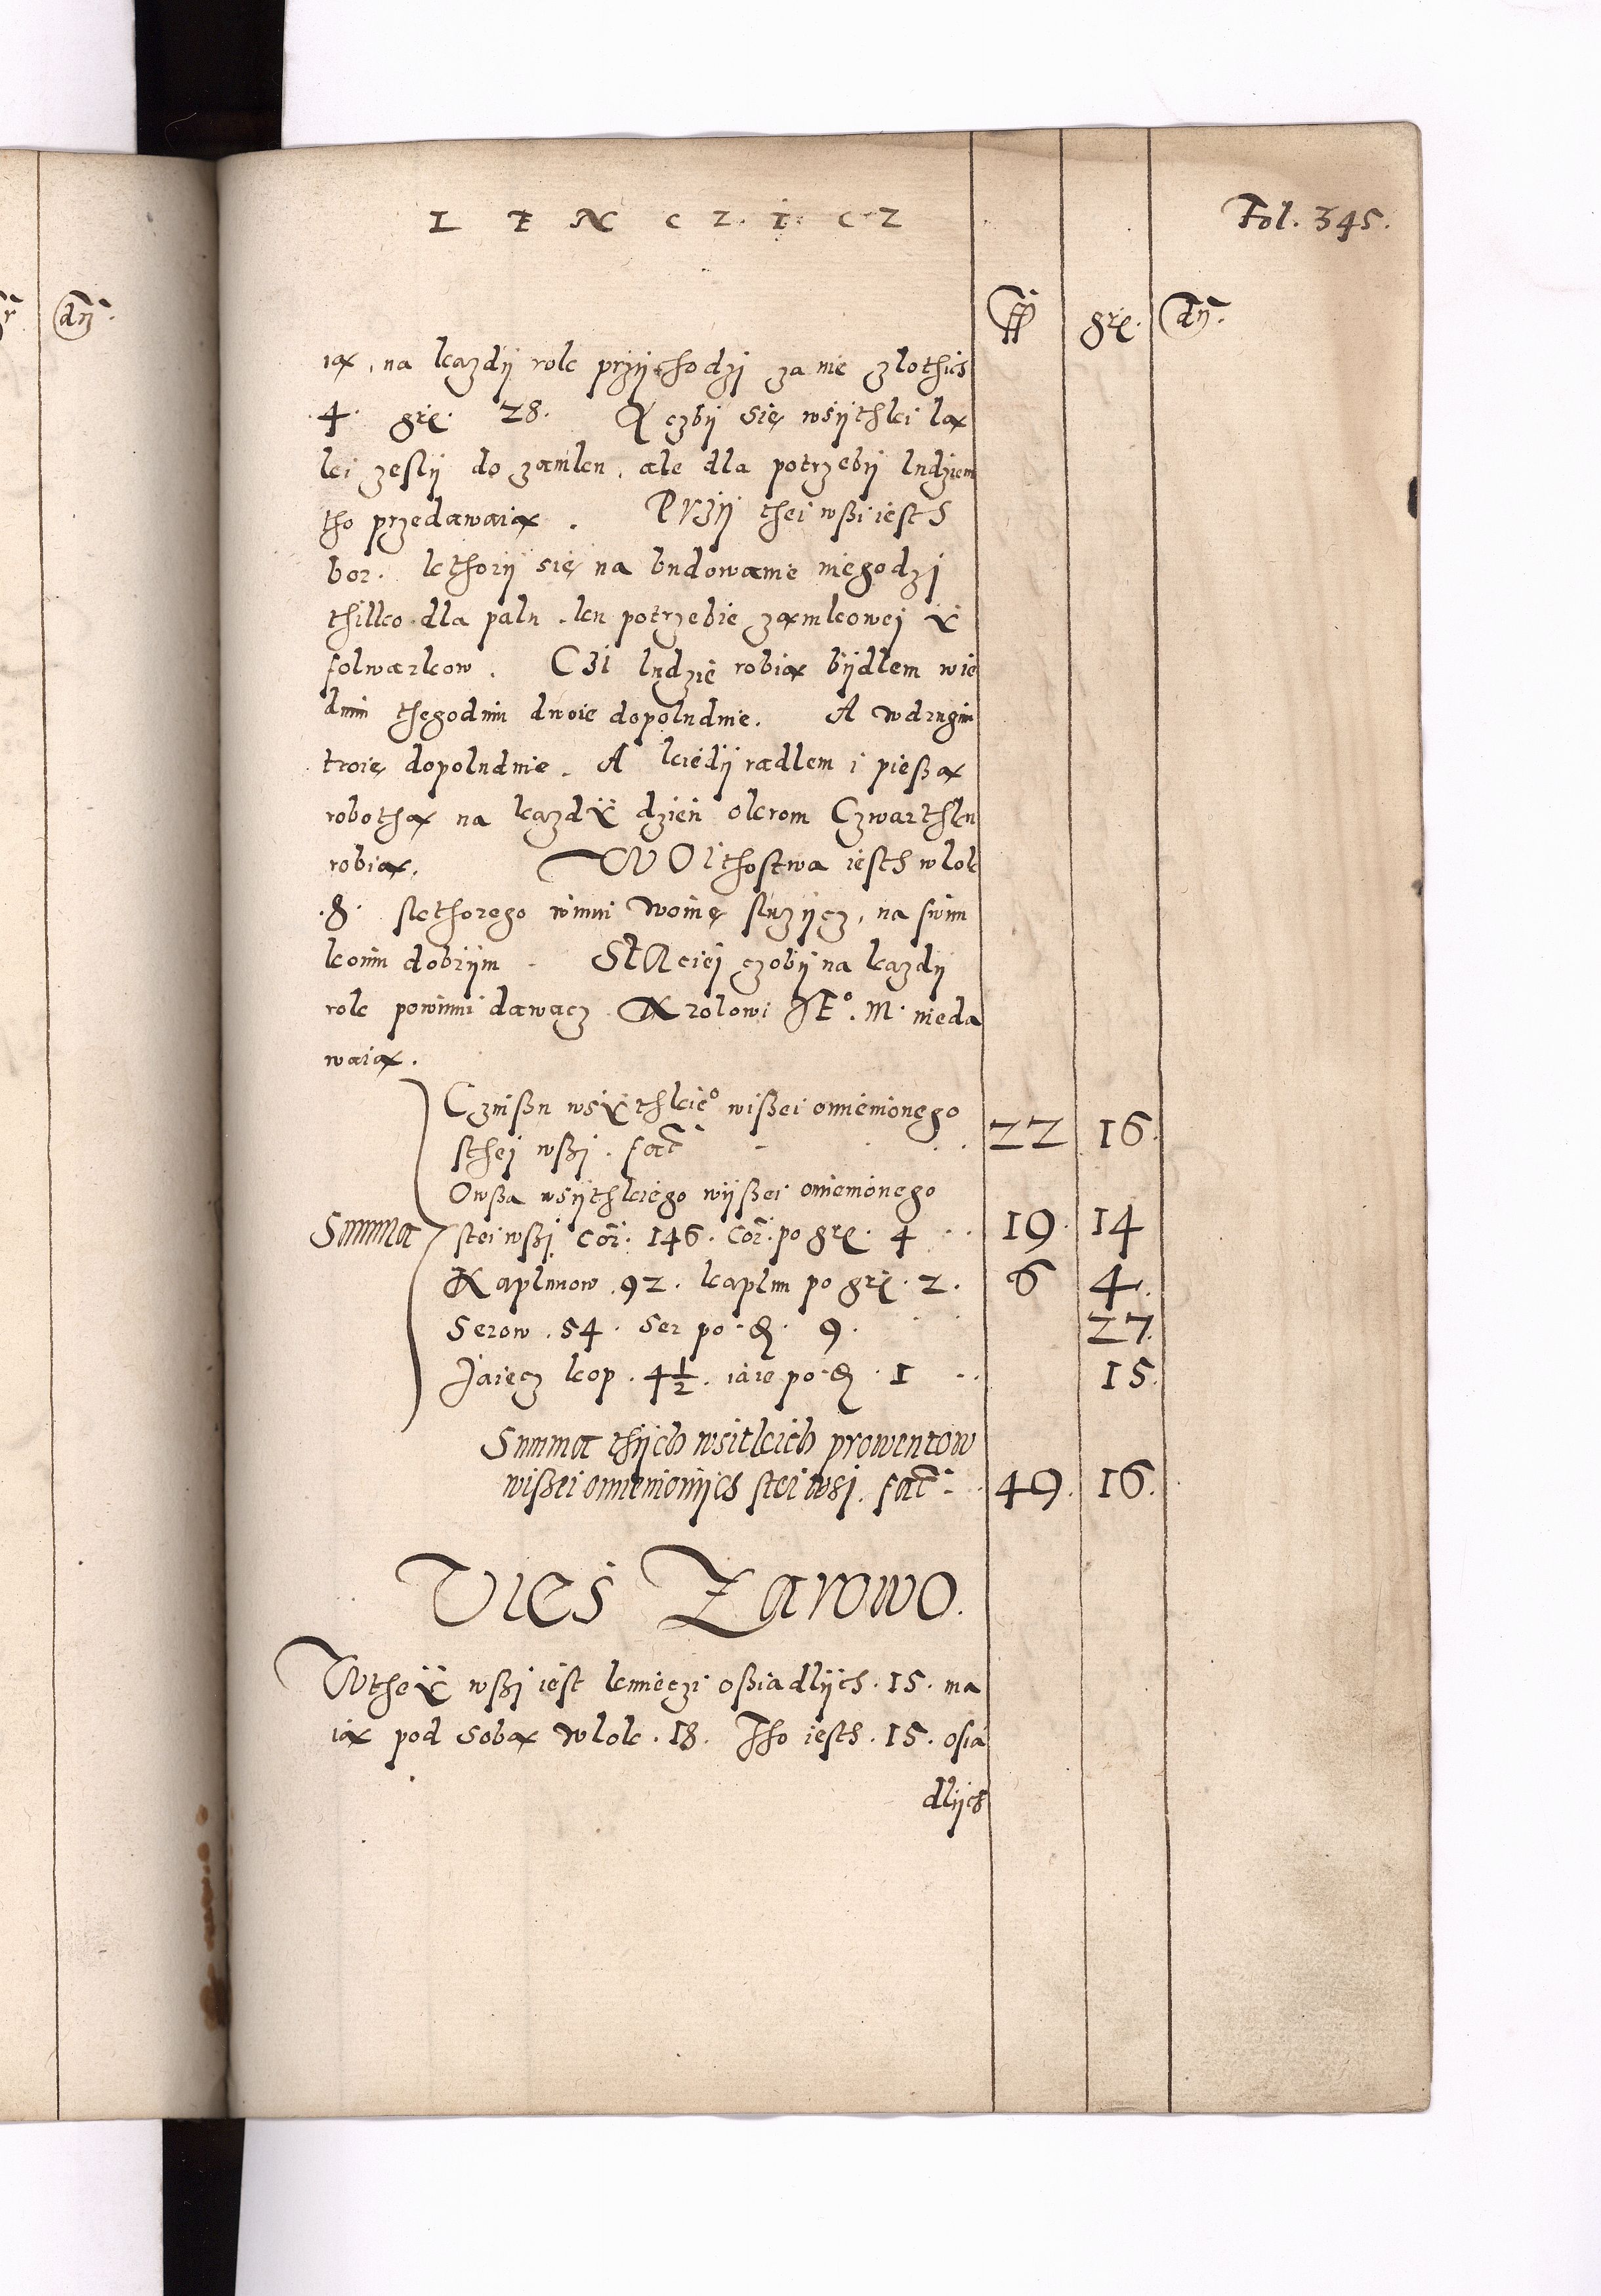 LENCZICZ
Fol. 345.
ff grͬ. dn̄.
dn̄.
iax, na kazdÿ rok przÿchodzi za nie zlothich
.4. grͬ. 28. A czbÿ się wsÿthki lax
ki zeslÿ do zamku. ale dla potrzebÿ ludziem
tho przedawaiax. Przÿ thei wßi iesth
bor. kthorÿ się na budowanie niegodzi
thilko dla palu .ku potrzebie zamkowej Ÿ
folwarkow. Czi ludzie robiax bÿdlem wie
dnim thegodniu dwoie dopoludnie. A wdrugim
troie dopoludnie. A kiedÿ radlem i pießax
robothax na kazdÿ dzien okrom Czwarthku
robiax. WOithostwa iesth wlok
.8. skthorego winni woinę sluzÿcz, na swim
koniu dobrÿm - StAciej czobÿ na kazdÿ
rok powinni dawacz Krolowi JEº. M. nieda
waiax.
Czinßu wsÿthkieº wißei omienionego
sthej wßi. fac̄ 22 16.
Owßa wsÿthkiego wÿßei omienionego
Summa stei wßi cor̄. 146. cor̄. po grͬ. 4 19. 14
Kaplunow .92. kaplun po grͬ. 2. 6 4.
Serow .54. Ser po .ꝺ. 9. 27.
Jaiecz kop .4½. iaie po .ꝺ .1 15.
Summa thÿch wsitkich prowentow
wißei omienionÿch stei wsi. fac̄ 49. 16.
Vies Zarowo.
Wtheÿ wßi iest kmieczi oßiadlÿch .15. ma
iax pod sobax wlok .18. Tho iesth .15. osia
dlÿch